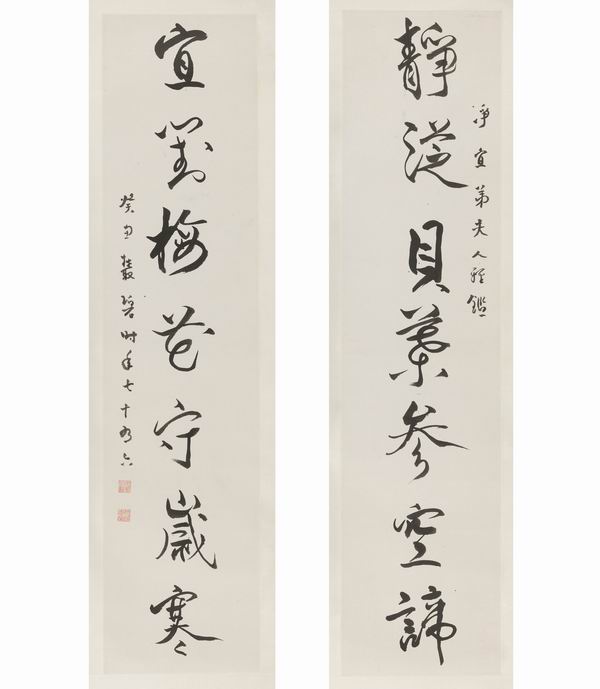 淨宜弟夫人雅鑑
靜從貝葉參空諦
宜對梅花守歲寒
癸丑叢碧時年七十有六